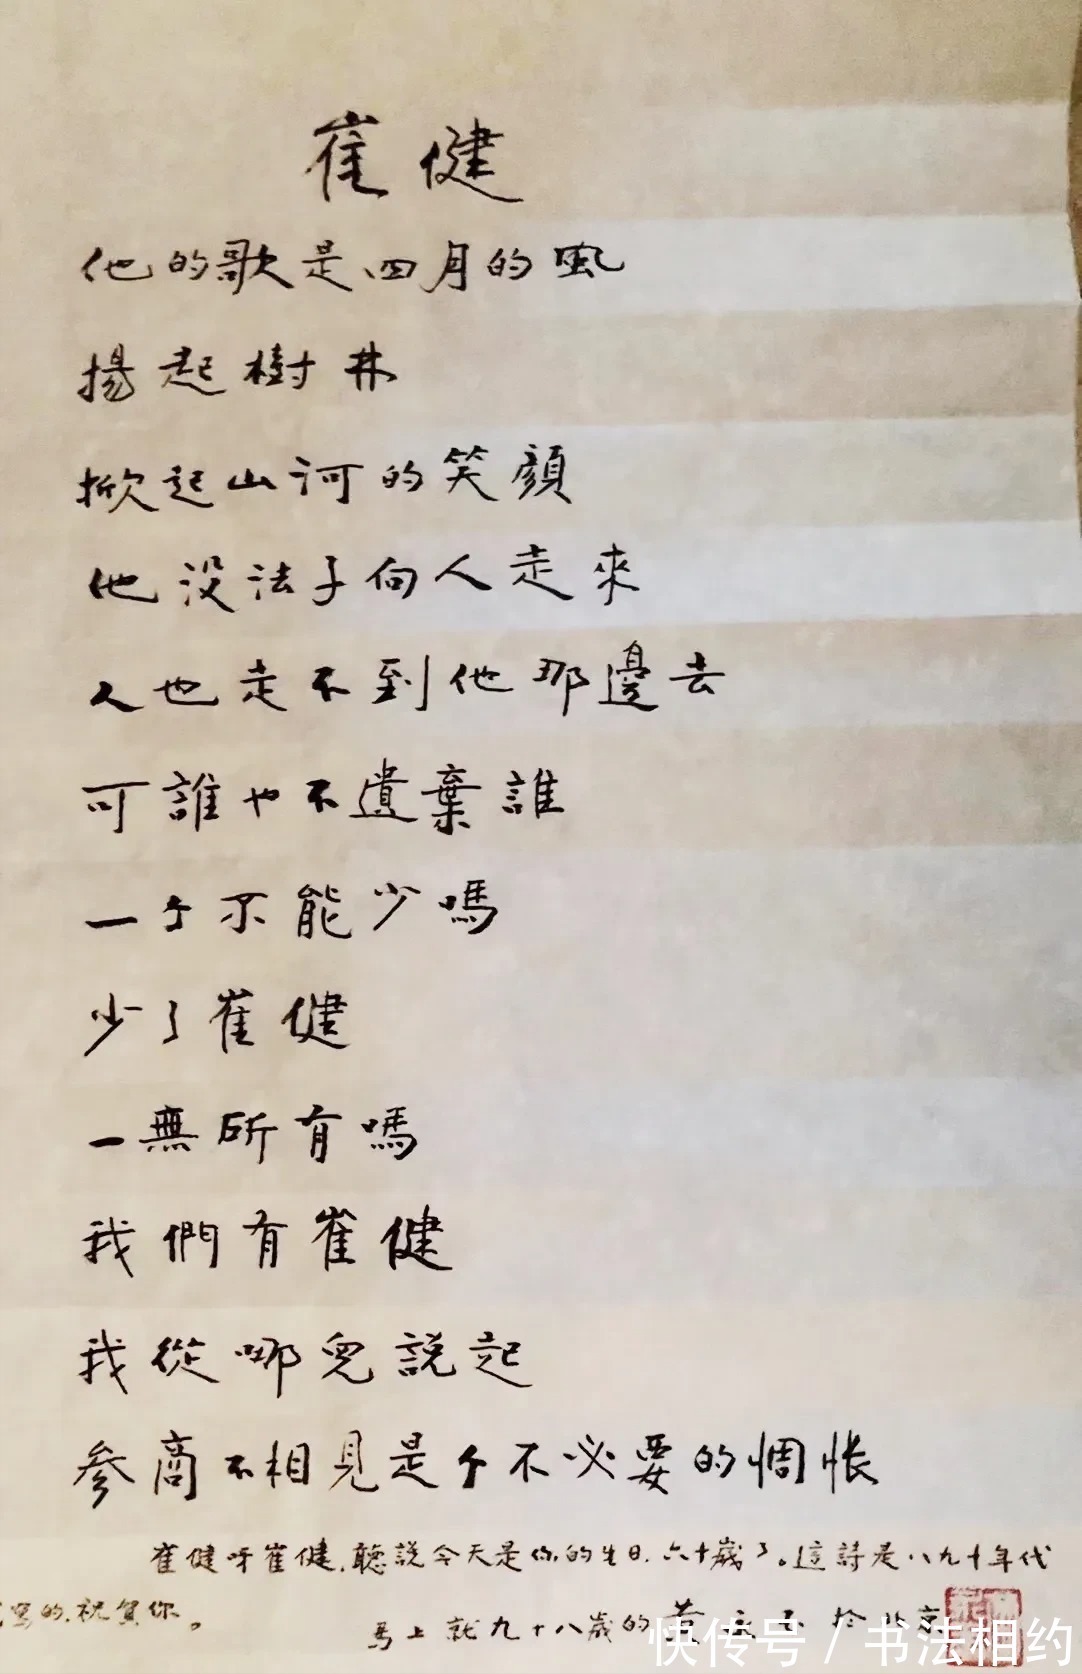 崔健
他的歌是四月的風
揚起樹林
掀起山河的笑顔
他没法子向人走來
人也走不到他那邊去
可誰也不遺棄誰
一个不能少嗎
少了崔健
一無所有嗎
我們有崔健
我從哪兒説起
參商不相見是个不必要的惆悵
崔健呀崔健,聽説今天是你的生日,六十歲了。這詩是八九十年代
寫的,祝賀你。
馬上就九十八歲的黄永玉於北京
快传号/书法相约